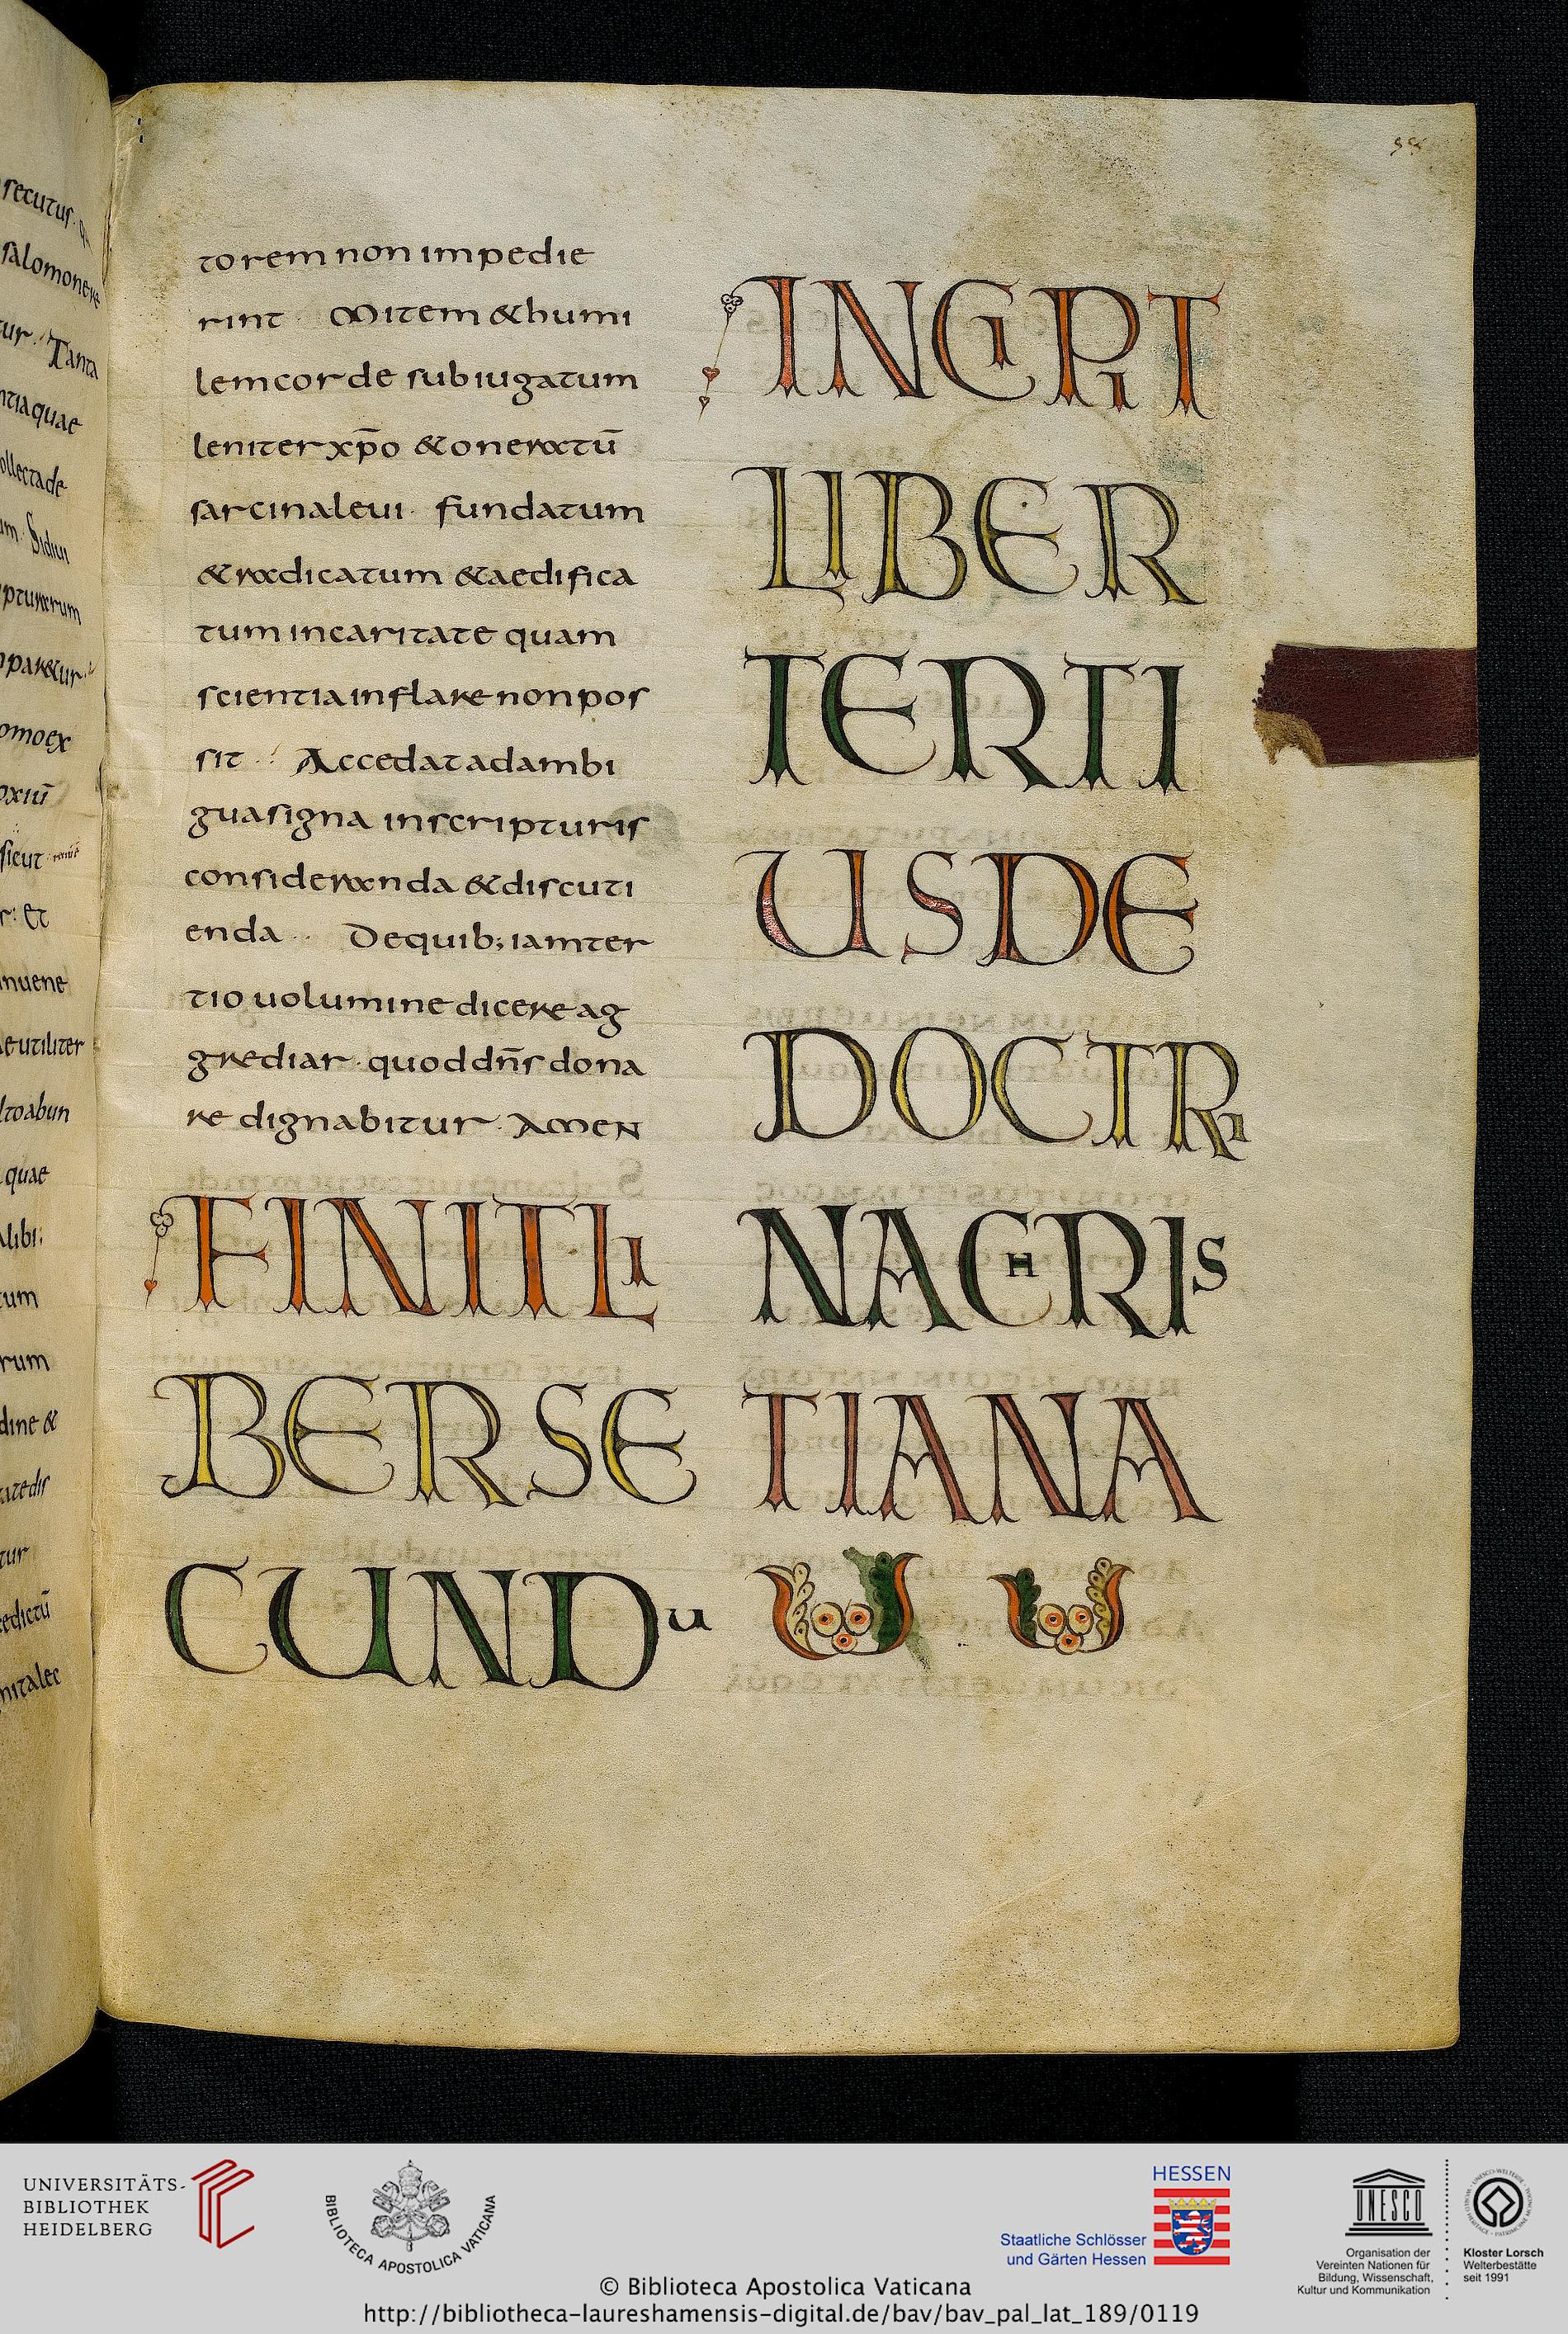 secutus· q
salomonere
tur· Tanta
ntiaquae
ollectade
um· Sidiui
ipturarum
npar&ur·
omoex
oxiū
sicut
r: Et
nuene
aeutiliter
ltoabun
quae
alibi·
tum
rum
dine &
tatedis
tur
edictū
nitalec
toremnonimpedie
rint· Mitem&humi
lemcordesubiugatum
leniterxp̄o &oneratū
sarcinaleui· fundatum
&radicatum &aedifica
tumincaritatequam
scientiainflarenonpos
sit· Accedatadambi
guasigna inscripturis
consideranda&discuti
enda· Dequib;iamter
tiouoluminedicereag
grediar·quoddn̄sdona
re dignabitur· AMEN
FINITLI
BERSE
CUNDu
95
INCIPIT
LIBER
TERTI
USDE
DOCTRI
NACHRIS
TIANA
UNIVERSITÄTS-
BIBLIOTHEK
HEIDELBERG
BIBLIOTECA APOSTOLICA VATICANA
HESSEN
Staatliche Schlösser
und Gärten Hessen
UNESCO
Organisation der
Vereinten Nationen für
Bildung, Wissenschaft,
Kultur und Kommunikation
Kloster Lorsch
Welterbestätte
seit 1991
© Biblioteca Apostolica Vaticana
http://bibliotheca-laureshamensis-digital.de/bav/bav_pal_lat_189/0119